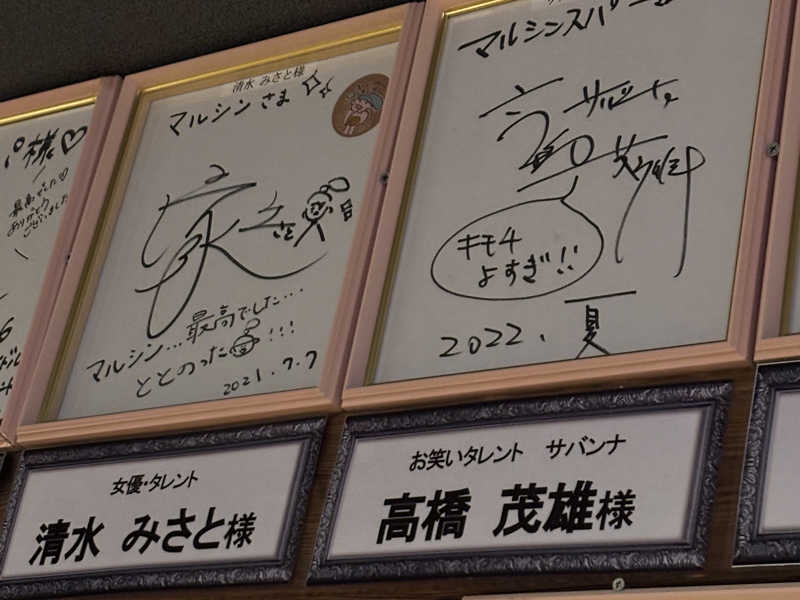 様♡
最高でした♡
ありがとう
ございました
清水 みさと様
マルシンさま
最高でした…
マルシン…
ととのった!!!
2021.7.7
女優・タレント
清水 みさと様
マルシンスパ
サバンナ
高橋
茂雄
キモチ
よすぎ!!
2022.夏
お笑いタレント サバンナ
高橋 茂雄様